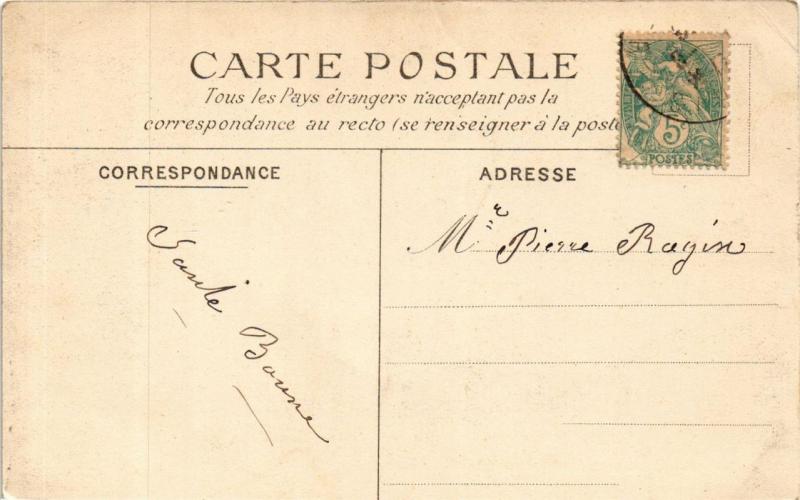 CARTE POSTALE
Tous les Pays étrangers n'acceptant pas la
correspondance au recto (se renseigner à la poste
CORRESPONDANCE
Santé
Bonne
ADRESSE
Mlle Pierre Ragin
5c
POSTES